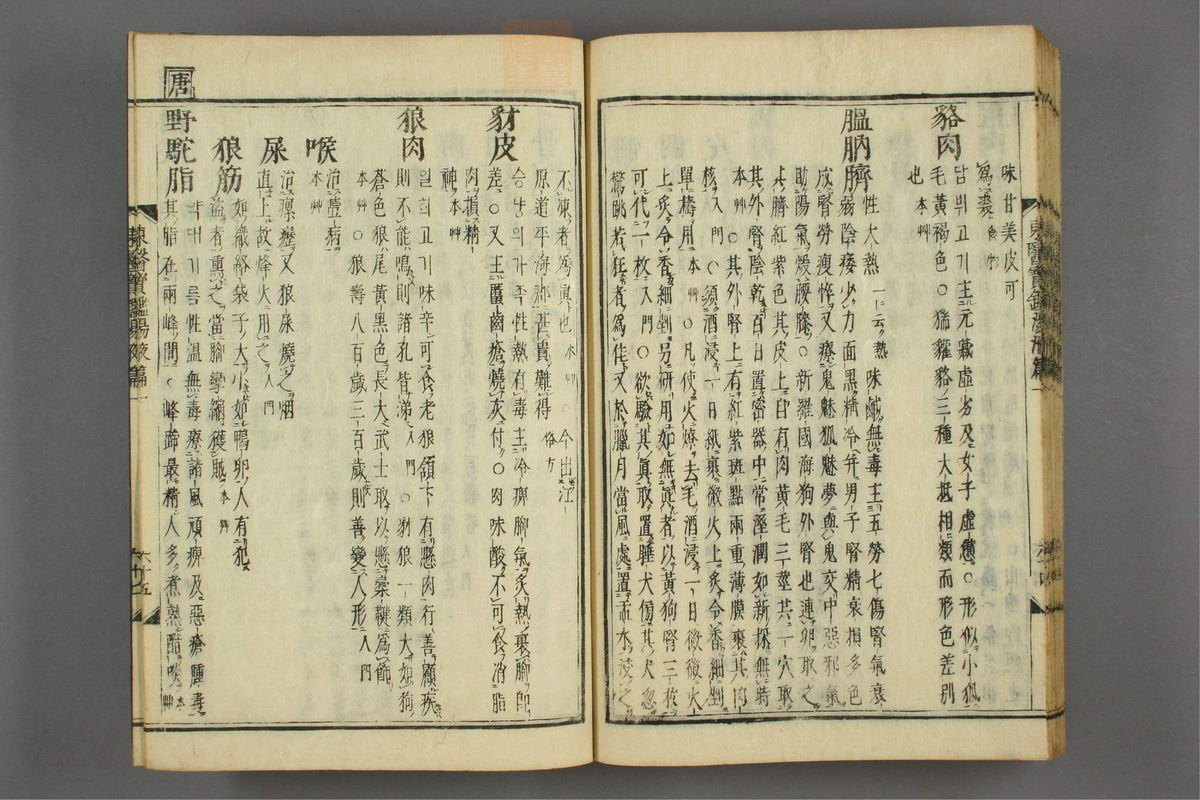 味甘美皮可
為裘 食物
貉肉 담븨고기主元藏虛劣及女子虛憊○形似小狐
毛黃褐色○猯貛貉三種大抵相類而形色差別
也 本艸
膃肭臍 性大熱 一云熱 味鹹無毒主五勞七傷腎氣衰
弱陰痿少力面黑精冷并男子腎精衰損多色
成腎勞瘦悴又療鬼魅狐魅夢與鬼交中惡邪氣
助陽氣煖腰膝○新羅國海狗外腎也連卵取之
其臍紅紫色其皮上自有肉黃毛三莖共一穴取
其外腎陰乾百日置密器中常溼潤如新採無時
本艸 ○其外腎上有紅紫斑點兩重薄膜裹其肉
核 入門 ○須酒浸一日紙裹微火上炙令香細剉
單擣用 本艸 ○凡使火燎去毛酒浸一日微微火
上炙令香細剉另研用如無眞者以黃狗腎三枚
可代一枚 入門 ○欲驗其眞取置睡犬傍其犬忽
驚跳若狂者爲佳又於臘月當風處置盂水浸之
不凍者爲眞也 本艸 ○今出江
原道平海郡甚貴難得 俗方
豺皮 승냥의가족性熱有毒主冷痹脚氣炙熱裹脚卽
差○又主䘌齒瘡燒灰付○肉味酸不可食消脂
肉損精
神 本艸
狼肉 일희고기味辛可食老狼頷下有懸肉行善顧疾
則不能鳴則諸孔皆涕 入門 ○豺狼一類大如狗
蒼色狼尾黃黑色長大武士取以懸櫜鞬爲飾
本艸 ○狼壽八百歲三百歲則善變人形 入門
喉 治噎病
本艸
屎 治瘰癧又狼屎燒之烟
直上故烽火用之 入門
狼筋 如織絡袋子大小如鴨卵人有犯
盜者熏之當脚攣縮獲賊 本艸
唐
野駝脂 약대기름性溫無毒療諸風頑痹及惡瘡腫毒
其脂在兩峰間○峰蹄最精人多煮熟醋啖 本艸
東醫寶鑑湯液篇一
六十五